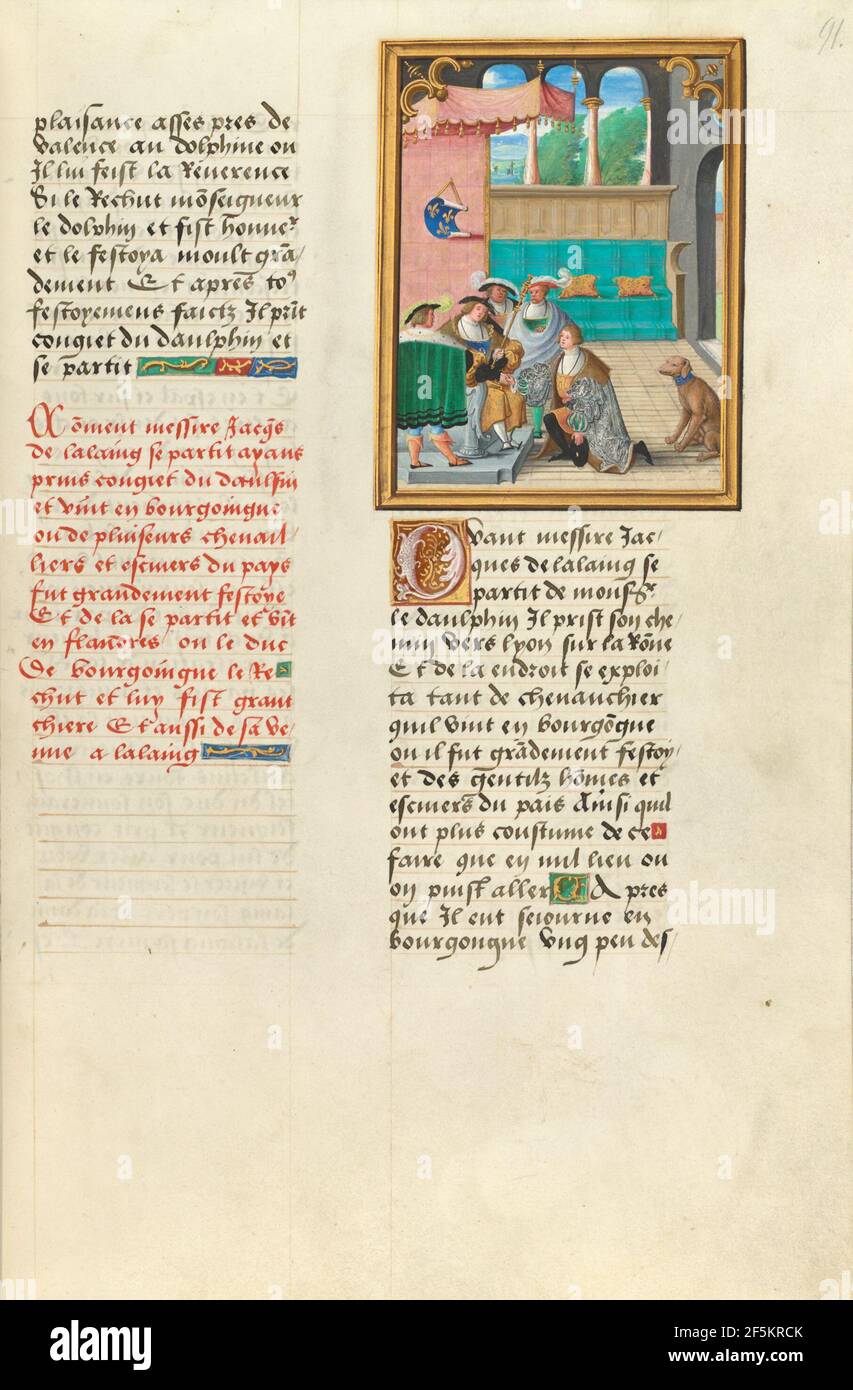 91.
plaisance asses pres de
valence au dolphine ou
Il lui feist la Reverence
Si le Rechut mōseigneur
le dolphin et fist hōnneʳ
et le festoya moult grā/
dement Et apres toꝰ
festoyemens faictz Il prīt
congiet du daulphin et
se partit
Cōment messire Jacq̄s
de lalaing se partit ayant
prins congiet du daulfin
et vint en bourgoingne
ou de pluiseurs cheuail
liers et escuiers du pays
fut grandement festoye
Et de la se partit et vīt
en flandres ou le duc
de bourgoingne le Re
chut et luy fist grant
chiere Et aussi de sa ve/
nue a lalaing
Quant messire Jac/
ques de lalaing se
partit de monsʳ
le daulphin Il prist son che/
min vers lyon sur la Rōne
Et de la endroit se exploi/
ta tant de cheuauchier
quil vint en bourgōgne
ou il fut grādement festoy/
et des gentilz hōmes et
escuiers du pais Ainsi quil
ont plus coustume de ce
faire que en nul lieu ou
on puist aller Apres
que Il eut seiourne en
bourgongne vng peu des/
alamy
alamy
Image ID: 2F5KRCK
www.alamy.com